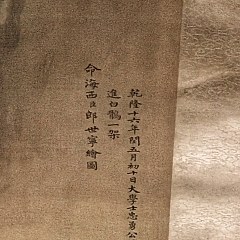 乾隆十六年閏五月初十日大學士忠勇公
進白鶻一架
命海西臣郎世寧繪圖